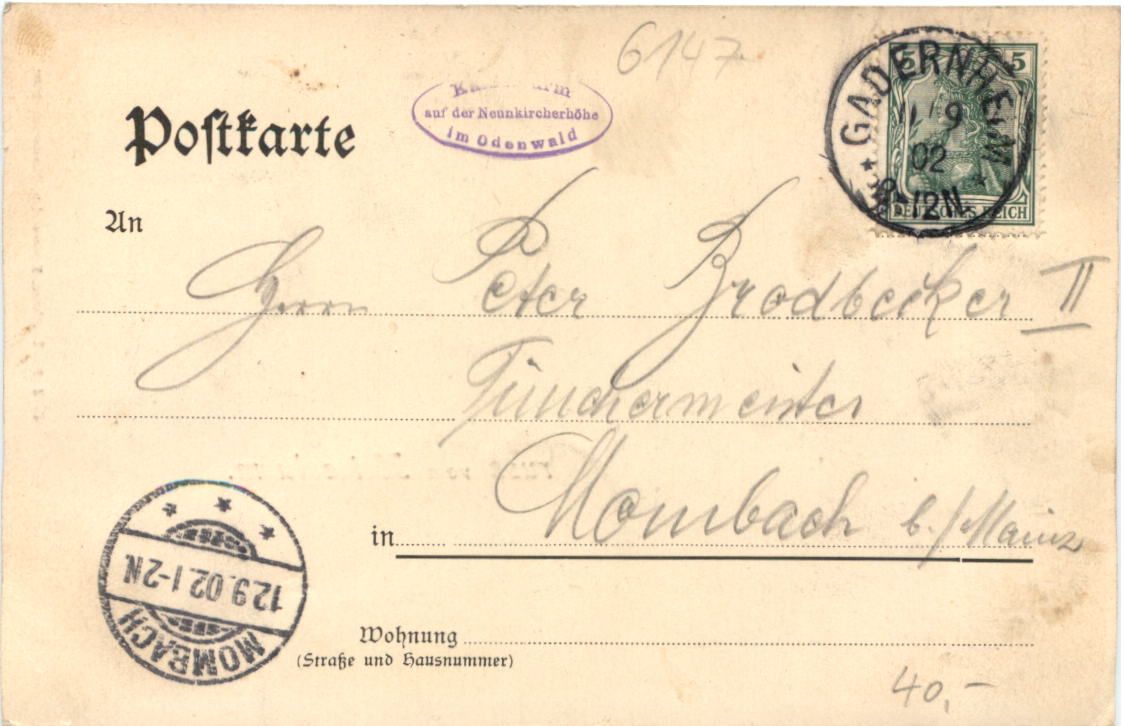 6147
Postkarte
auf der Neunkircherhöhe
im Odenwald
5 5
GADERNHEIM
9
02
8-12N.
DEUTSCHES REICH
An
Herrn Peter Brodbecker II
Tünchermeister
in Mombach b./Mainz
12.9.02.1-2N.
MOMBACH
Wohnung
(Straße und Hausnummer)
40,-